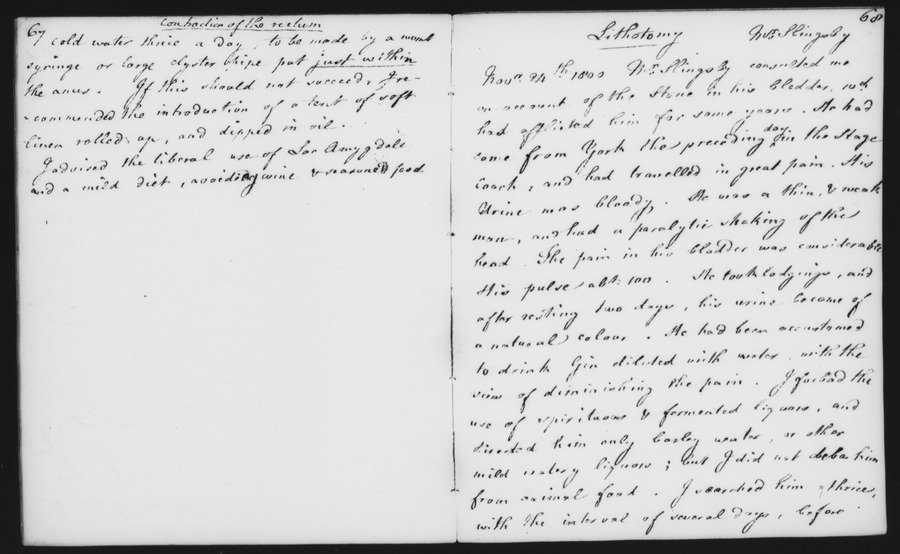 67 contraction of the rectum
of cold water thrice a day, to be made by a small
syringe or large clyster pipe put just within
the anus. If this should not succeed, I re-
-commended the introduction of a tent of soft
linen rolled up, and dipped in oil.
I advised the liberal use of Lac Amygdale
and a mild diet, avoiding wine & seasoned food.
68
Lithotomy Mr. Slingsby
Novr. 24th 1800 Mr. Slingsby consulted me
on account of the Stone in his bladder, wch
had afflicted him for some years. He had
come from York the preceding day in the Stage
Coach, and had travelled in great pain. His
Urine was bloody. He was a thin, & weak
man, and had a paralytic shaking of the
head. The pain in his bladder was considerable
His pulse abt. 100. He took lodgings, and
after resting two days, his urine became of
a natural colour. He had been accustomed
to drink Gin diluted with water, with the
view of diminishing the pain. I forbad the
use of spirituous & fermented liquors, and
directed him only barley water, or other
mild watery liquors; but I did not debar him
from animal food. I searched him thrice,
with the interval of several days, before